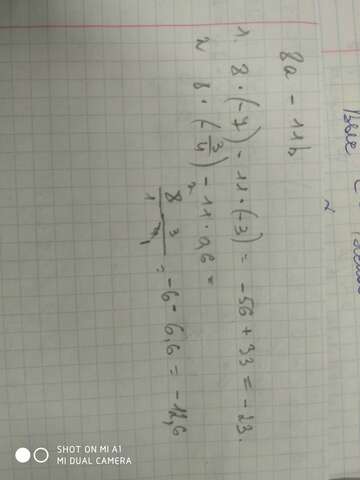 8a - 11b
1. 8 · (-7) - 11 · (-3) = -56 + 33 = -23.
2 8 · (-3/4) - 11 · 0,6 =
= -6 - 6,6 = -12,6
SHOT ON MI A1
MI DUAL CAMERA